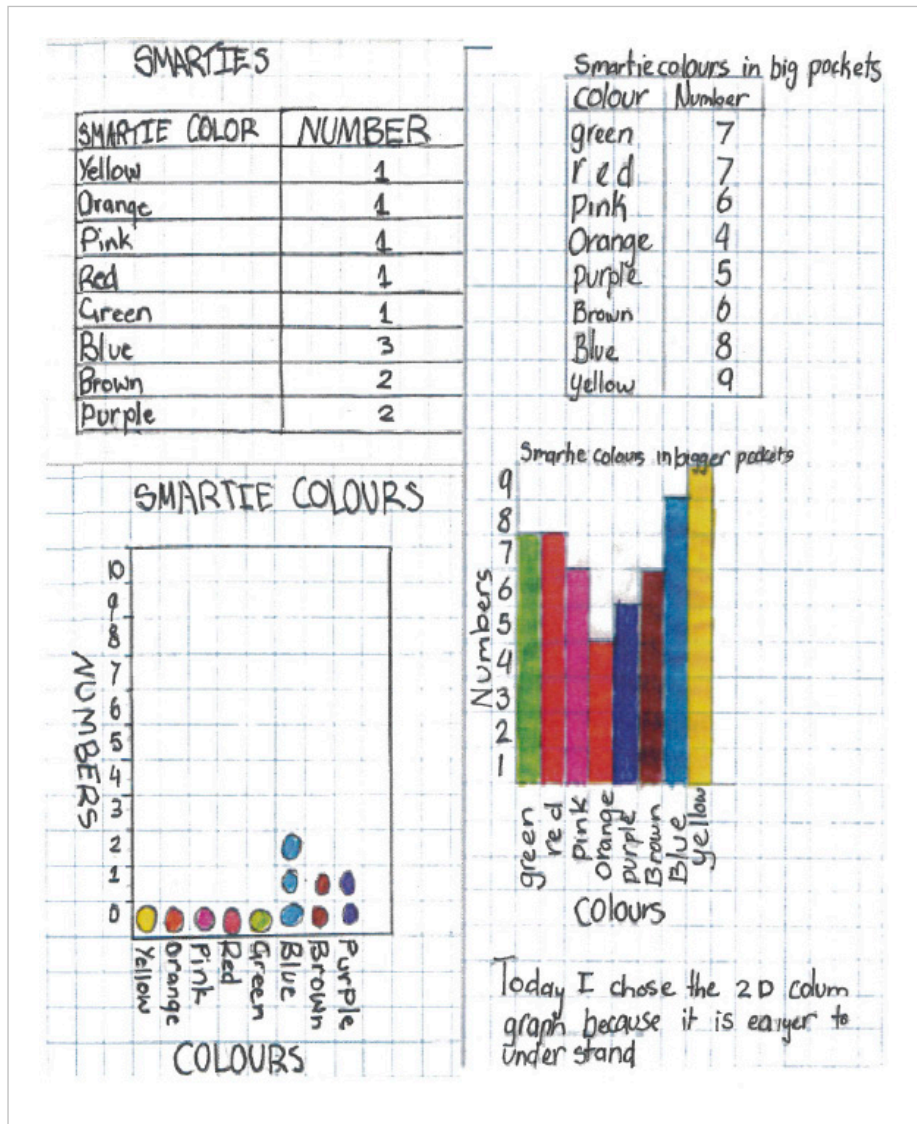 SMARTIES
SMARTIE COLOR NUMBER
Yellow 1
Orange 1
Pink 1
Red 1
Green 1
Blue 3
Brown 2
Purple 2
SMARTIE COLOURS
10
9
8
7
6
5
4
3
2
1
0
NUMBERS
Yellow
Orange
Pink
Red
Green
Blue
Brown
Purple
COLOURS
Smartie colours in big pockets
colour Number
green 7
red 7
Pink 6
Orange 4
purple 5
Brown 6
Blue 8
yellow 9
Smartie colours in bigger pockets
9
8
7
6
5
4
3
2
1
Numbers
green
red
pink
orange
purple
Brown
Blue
yellow
Colours
Today I chose the 2D colum
graph because it is eaiyer to
under stand